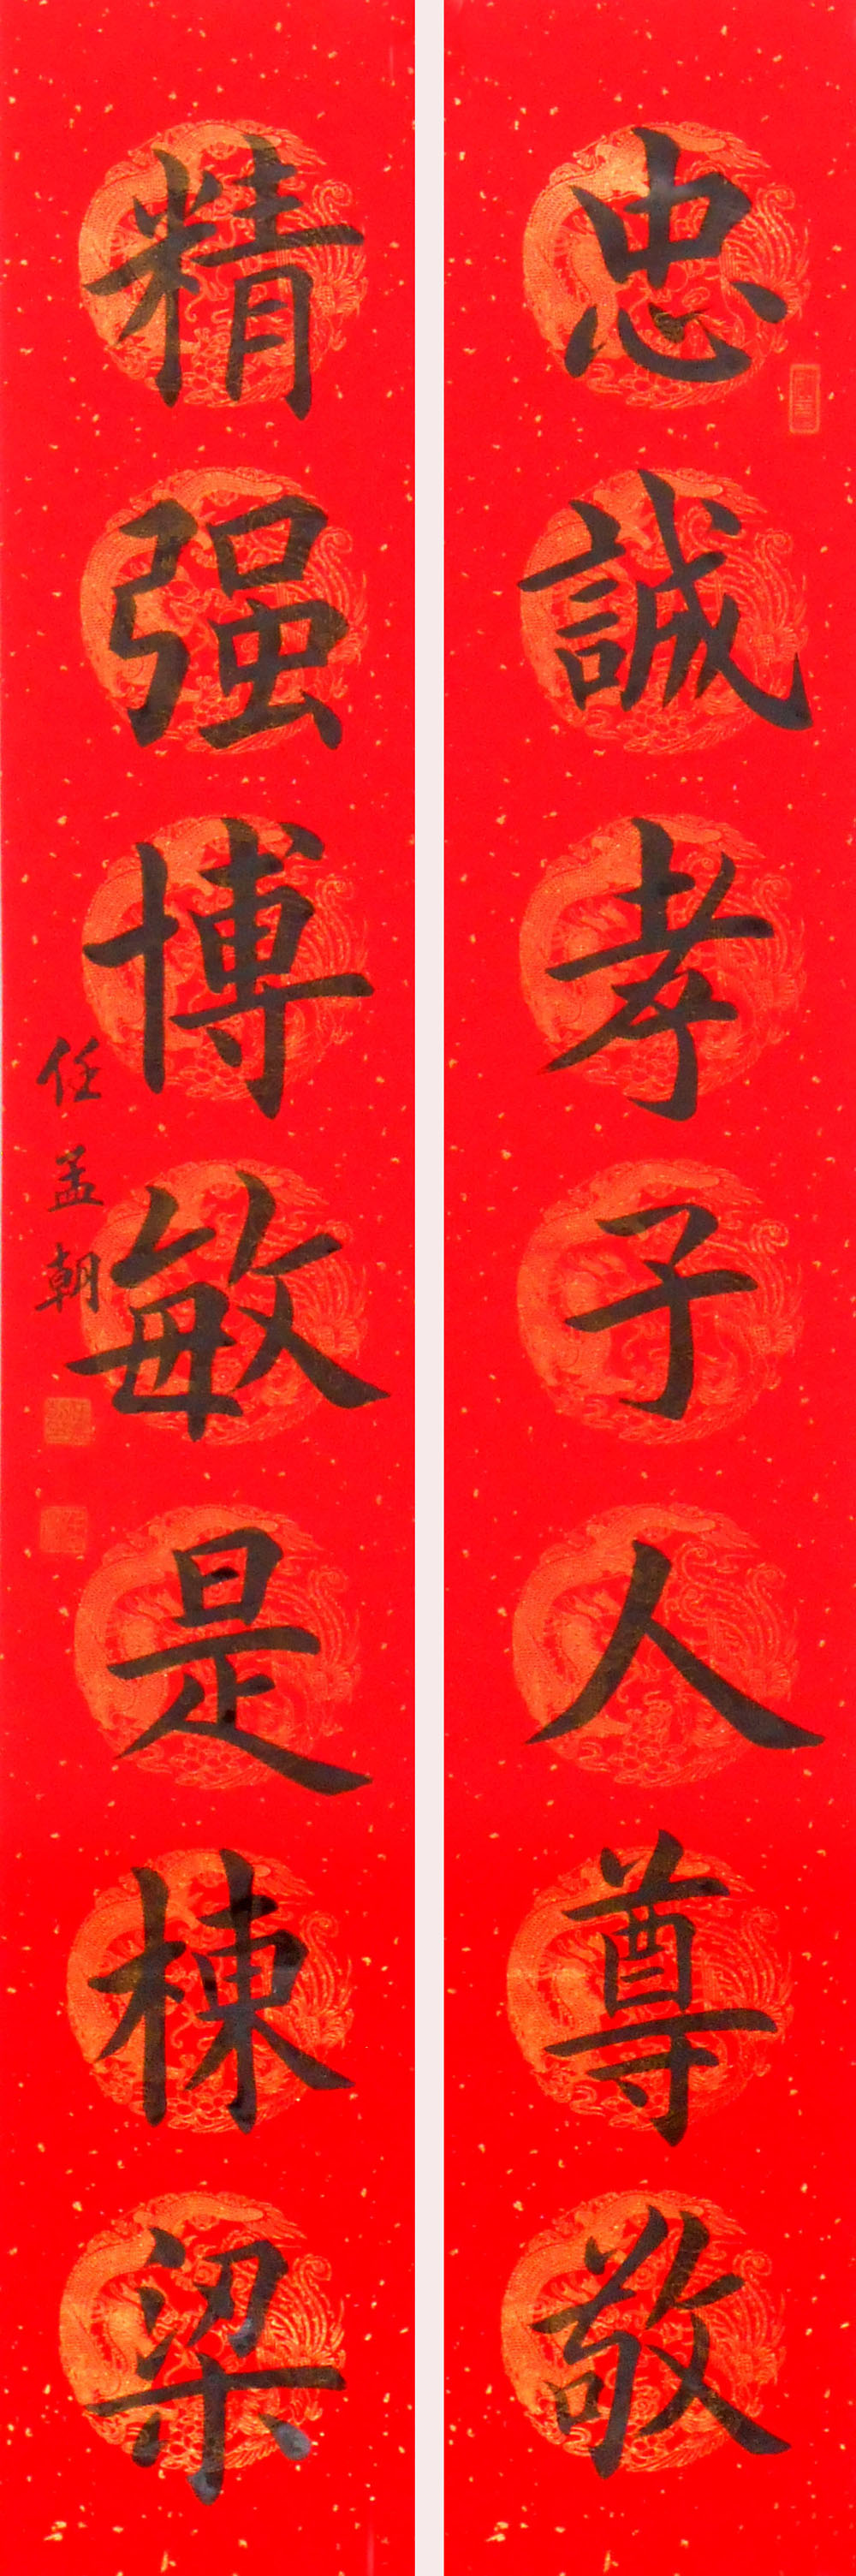 忠誠孝子人尊敬
精强博敏是棟梁
任孟朝